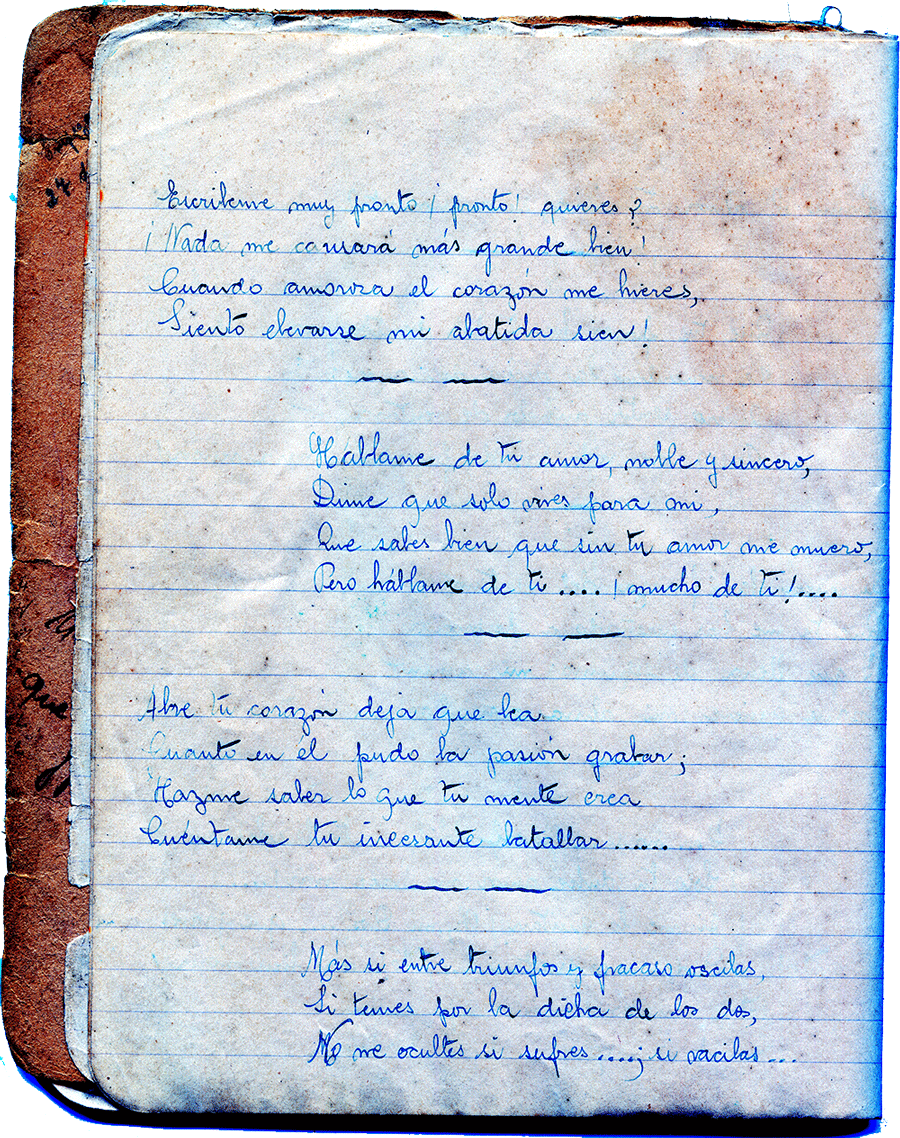 24 d
Escribeme muy pronto ¡ pronto! quieres?
¡Nada me causará más grande bien!
Cuando amorosa el corazón me hieres,
Siento elevarse mi abatida sien!
Háblame de tu amor, noble y sincero,
Dime que solo vives para mi,
Que sabes bien que sin tu amor me muero,
Pero háblame de ti .... ¡mucho de ti!....
Abre tu corazón deja que lea
Cuanto en el pudo la pasión grabar;
Hazme saber lo que tu mente crea
Cuéntame tu incesante batallar......
que
Más si entre triunfos y fracaso oscilas,
Si temes por la dicha de los dos,
No me ocultes si sufres ....; si vacilas ...